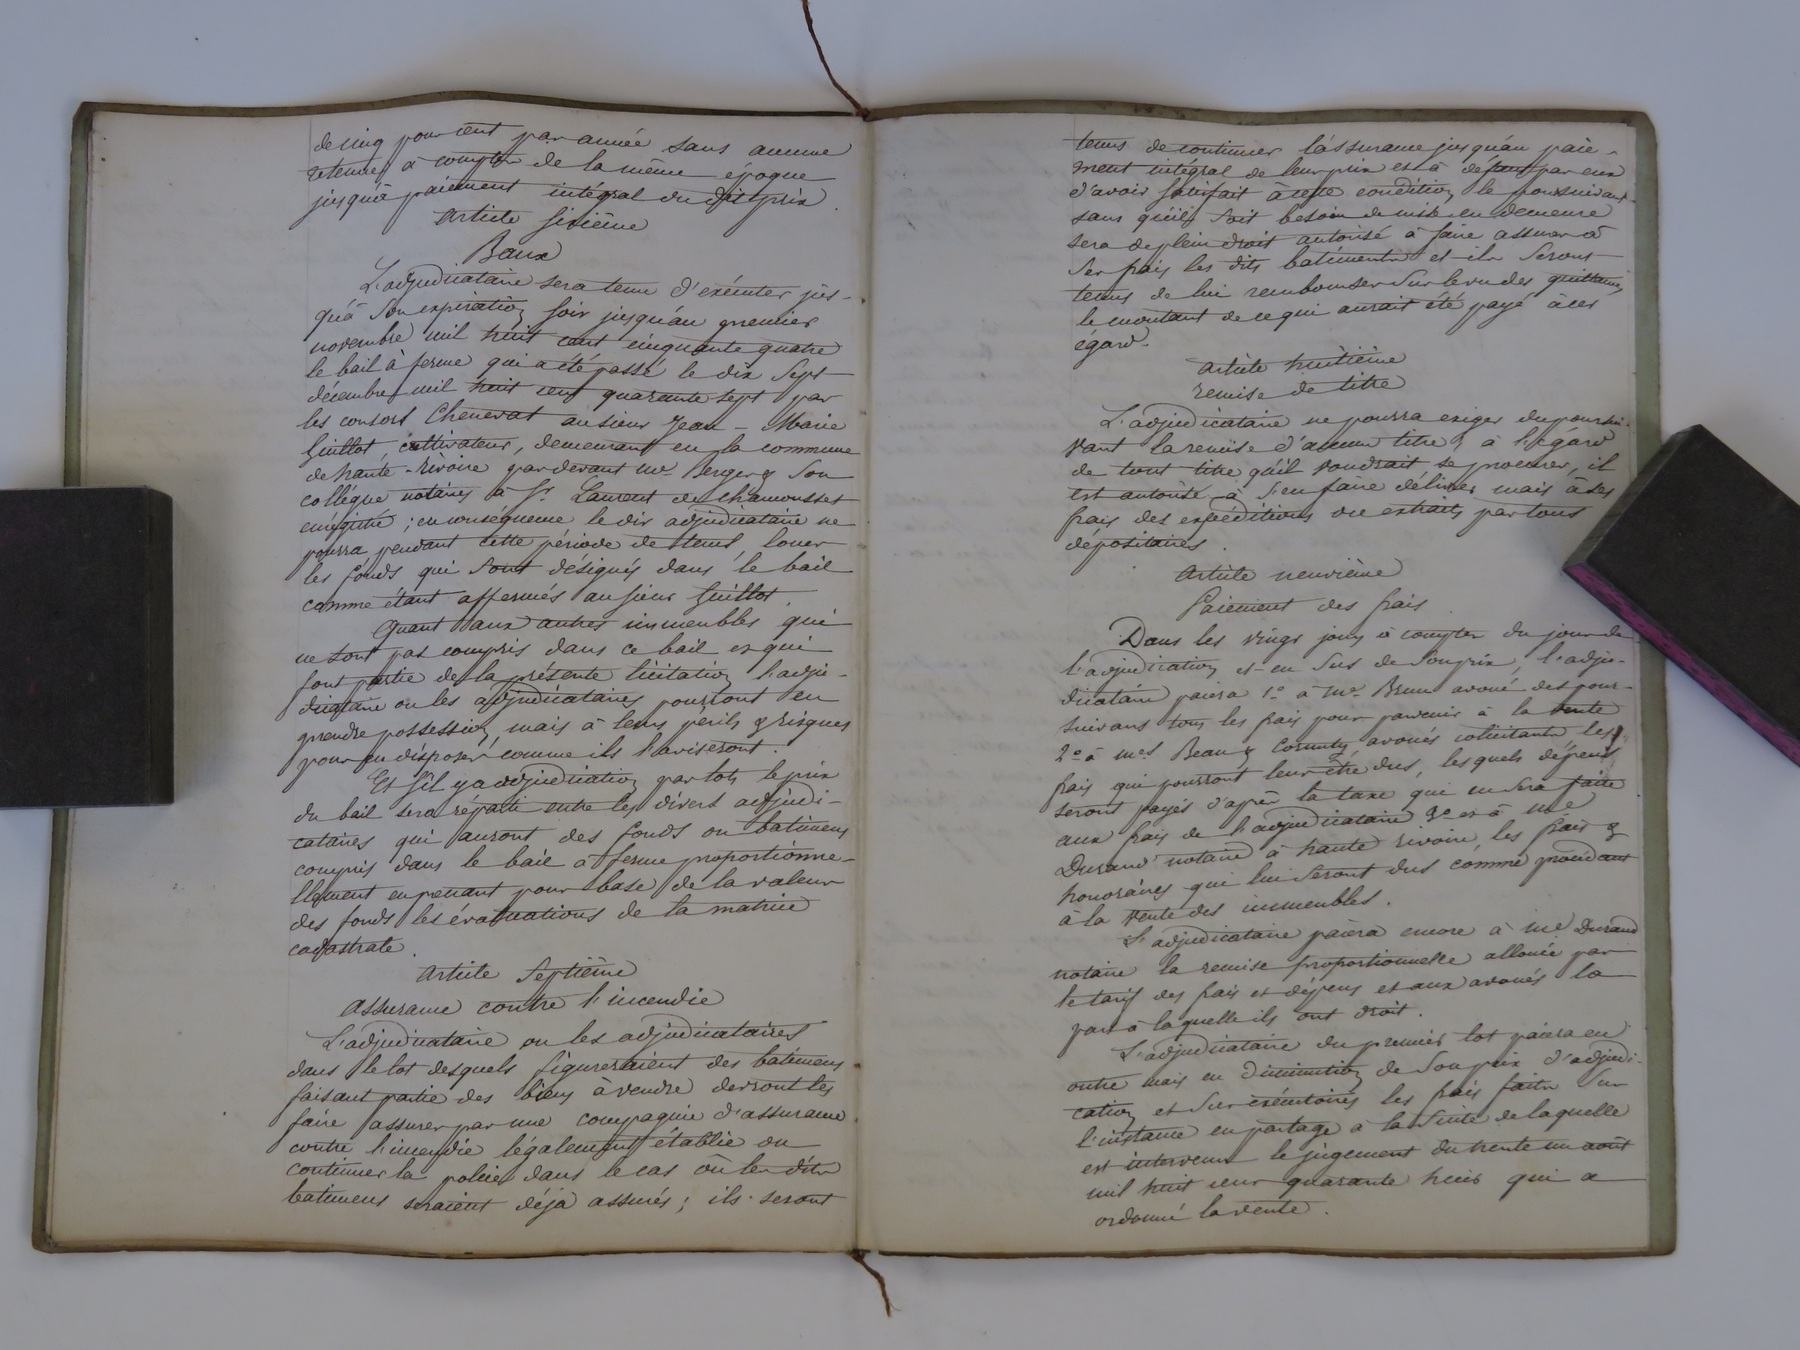 de cinq pour cent par année sans aucune
retenue, à compter de la même époque
jusqu'à paiement intégral du dit prix.
Article Sixième
Baux
L'adjudicataire sera tenu d'exécuter jus-
qu'à son expiration, soit jusqu'au premier
novembre mil huit cent cinquante quatre
le bail à ferme qui a été passé le dix Sept
décembre mil huit cent quarante sept par
les consorts Chenevat au sieur Jean-Marie
Guillot, cultivateur, demeurant en la commune
de haute-rivoire par devant me Berger & Son
collègue notaires à St Laurent de chamousset
enregistré; en conséquence le dit adjudicataire ne
pourra pendant cette période de tems, louer
les fonds qui sont désignés dans le bail
comme étant affermés au sieur Guillot.
Quant aux autres immeubles qui
ne sont pas compris dans ce bail et qui
font partie de la présente licitation, l'adju-
dicataire ou les adjudicataires pourront en
prendre possession, mais à leurs périls & risques
pour en disposer comme ils l'aviseront.
Et s'il y a adjudication par lots le prix
du bail sera réparti entre les divers adjudi-
cataires qui auront des fonds ou batimens
compris dans le bail à ferme proportionne-
llement en prenant pour base de la valeur
des fonds les évaluations de la matrice
cadastrale.
Article Septième
Assurance contre l'incendie
L'adjudicataire ou les adjudicataires
dans le lot desquels figureraient des batimens
faisant partie des biens à vendre devront les
faire assurer par une compagnie d'assurance
contre l'incendie légalement établie ou
continuer la police dans le cas où les dits
batimens seraient déjà assurés; ils seront
tenus de continuer l'assurance jusqu'au paie-
ment intégral de leur prix et à défaut par eux
d'avoir satisfait à cette condition, le poursuivant
sans qu'il soit besoin de mise en demeure
sera de plein droit autorisé à faire assurer à
ses frais les dits batiments et ils seront
tenus de lui rembourser sur le vu des quittances,
le montant de ce qui aurait été payé à cet
égard.
Article huitième
remise de titre
L'adjudicataire ne pourra exiger du poursui-
vant la remise d'aucun titre; à l'égard
de tout titre qu'il voudrait se procurer, il
est autorisé à s'en faire délivrer mais à ses
frais des expéditions ou extraits par tous
dépositaires.
Article neuvième
Paiement des frais
Dans les vingt jours à compter du jour de
l'adjudication, et en sus de son prix, l'adju-
dicataire paiera 1.º à me. Brun avoué des pour-
suivans tous les frais pour parvenir à la vente
2.º à mes. Beau & avoués colicitants les
frais qui pourront leur être dus, lesquels dépens
seront payés d'après la taxe qui en sera faite
aux frais de l'adjudicataire 3.º et à me
Durand notaire à haute rivoire, les frais &
honoraires qui lui seront dus comme procédant
à la vente des immeubles.
L'adjudicataire paiera encore à me Durand
notaire la remise proportionnelle allouée par
le tarif des frais et dépens et aux avoués la
part à laquelle ils ont droit.
L'adjudicataire du premier lot paiera en
outre mais en diminution, de son prix d'adjudi-
cation, et sur exécutoires les frais faits sur
l'instance en partage à la suite de laquelle
est intervenu le jugement du trente un août
mil huit cent quarante huit qui a
ordonné la vente.